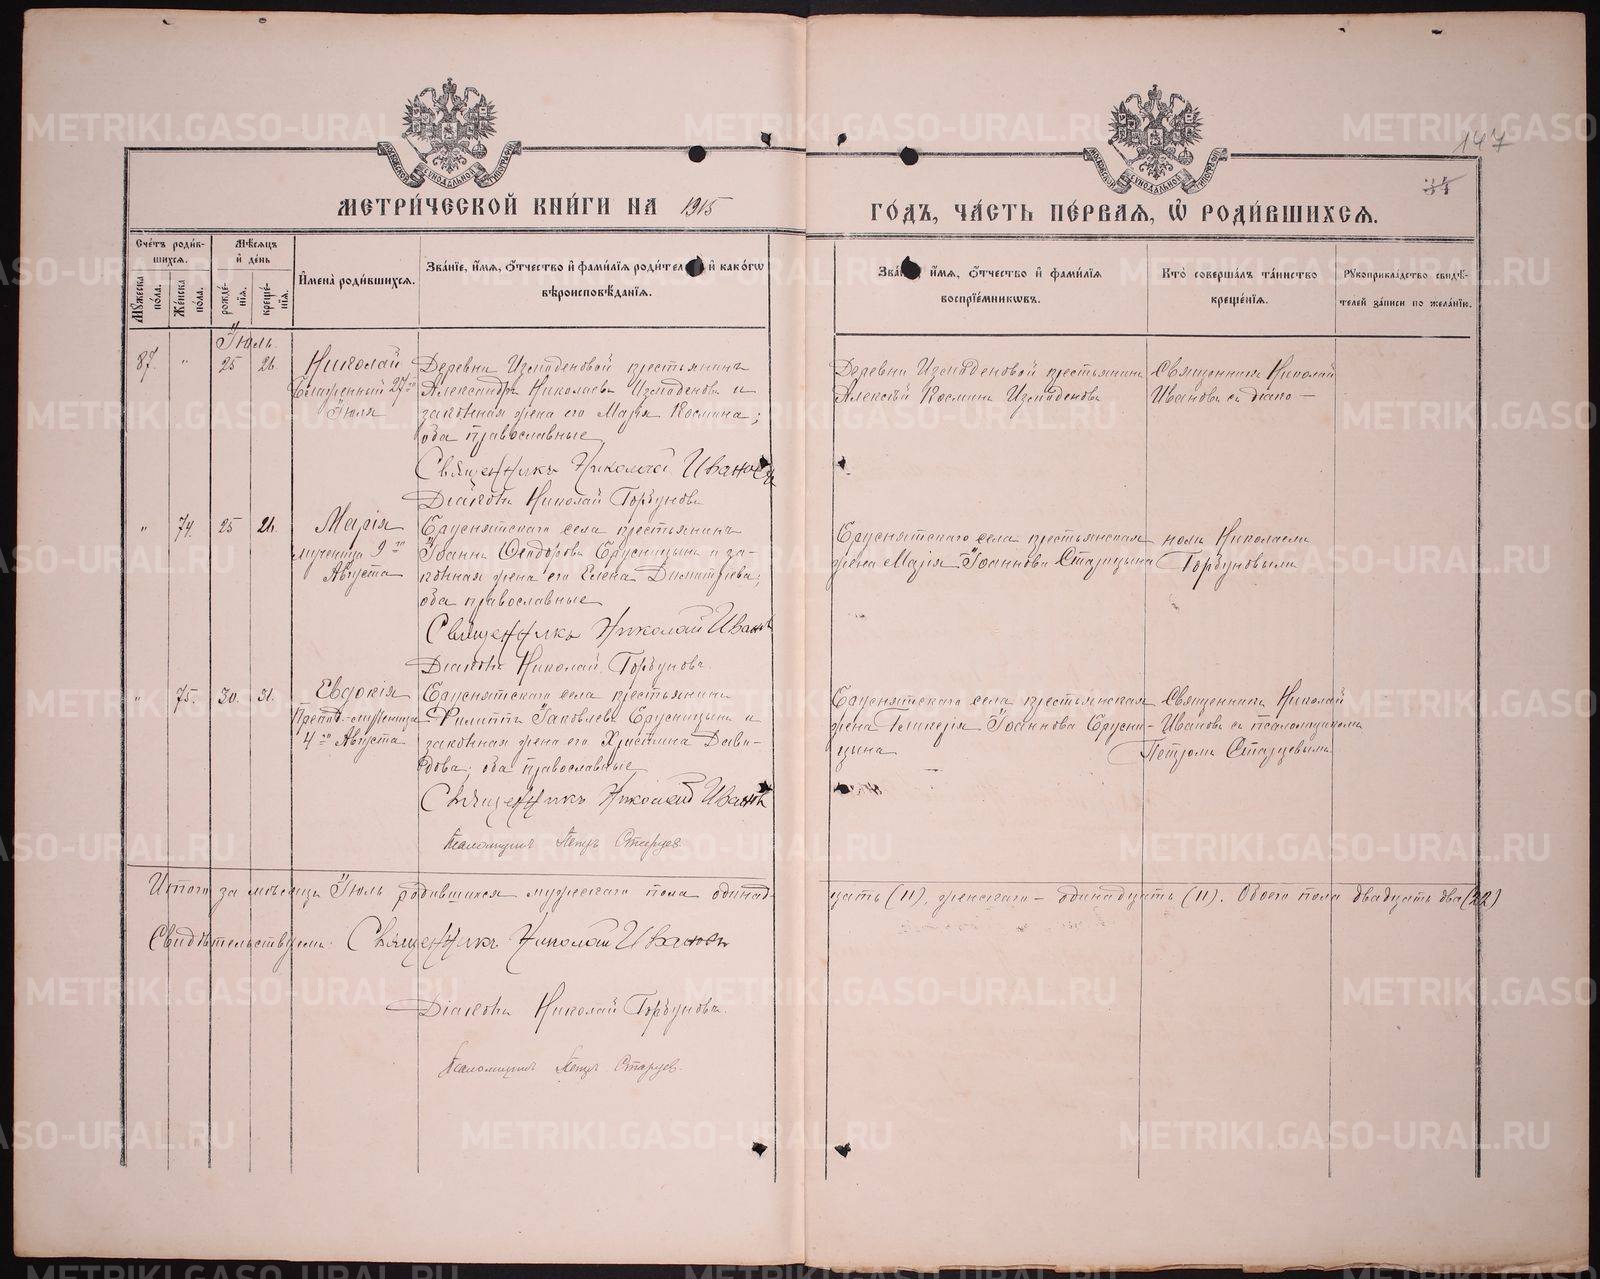 147
35
МЕТРИ́ЧЕСКОЙ КНИ́ГИ НА 1915
ГО́ДЪ, ЧА́СТЬ ПЕ́РВАѦ, Ѿ РОДИ́ВШИХСѦ.
Счетъ роди́в-
шихсѧ.
Мѣсѧцъ
и день
Мꙋжеска
по́ла.
Же́нска
по́ла.
рожде́-
нїѧ.
креще́-
нїѧ.
И҆мена̀ роди́вшихсѧ.
Зва́нїе, и҆́мѧ, ѻ҆́тчество и҆ фами́лїѧ роди́тел и҆ како́гѡ
вѣроисповѣ́данїѧ.
и҆́мѧ, ѻ҆́тчество и҆ фами́лїѧ
воспрїе́мникѡвъ.
Кто̀ соверша́лъ та́инство
креще́нїѧ.
Рꙋкоприкла́дство свидѣ́-
телей за́писи по жела́нїю.
Іюль
87. " 25 26.
Николай
Блаженный 27го
Іюля
Деревни Измоденовой крестьянинъ
Александръ Николаевъ Измоденовъ и
законная жена его Марѳа Космина;
оба православные
Священникъ Николай Ивановъ
Діаконъ Николай Горбуновъ
Деревни Измоденовой крестьянинъ
Алексѣй Косминъ Измоденовъ
Священникъ Николай
Ивановъ съ діако-
" 74. 25 26.
Марія
мученица 9го
Августа
Бруснятскаго села крестьянинъ
Іоаннъ Ѳеодоровъ Брусницынъ и за-
конная жена его Елена Димитріева;
оба православные
Священникъ Николай Ивановъ
Діаконъ Николай Горбуновъ.
Бруснятскаго села крестьянская
жена Марія Іоаннова Старицына
номъ Николаемъ
Горбуновымъ
" 75. 30. 31.
Евдокія
Препод.-мученица
4го Августа
Бруснятскаго села крестьянинъ
Филиппъ Іаковлевъ Брусницынъ и
законная жена его Христина Дави-
дова; оба православные
Священникъ Николай Ивановъ
Псаломщикъ Петръ Старцев
Бруснятскаго села крестьянская
жена Гликерія Іоаннова Брусни-
цына
Священникъ Николай
Ивановъ съ псаломщикомъ
Петромъ Старцевымъ
Итого за мѣсяцъ Іюль родившихся мужескаго пола одинад-
цать (11), женскаго – одинадцать (11). Обоего пола двадцать два (22)
Свидѣтельствуемъ: Священникъ Николай Ивановъ
Діаконъ Николай Горбуновъ.
Псаломщикъ Петръ Старцев.
METRIKI.GASO-URAL.RU